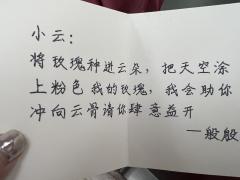 小云：
将玫瑰种进云朵，把天空涂
上粉色 我的玫瑰，我会助你
冲向云骨请你肆意益开
—般殷